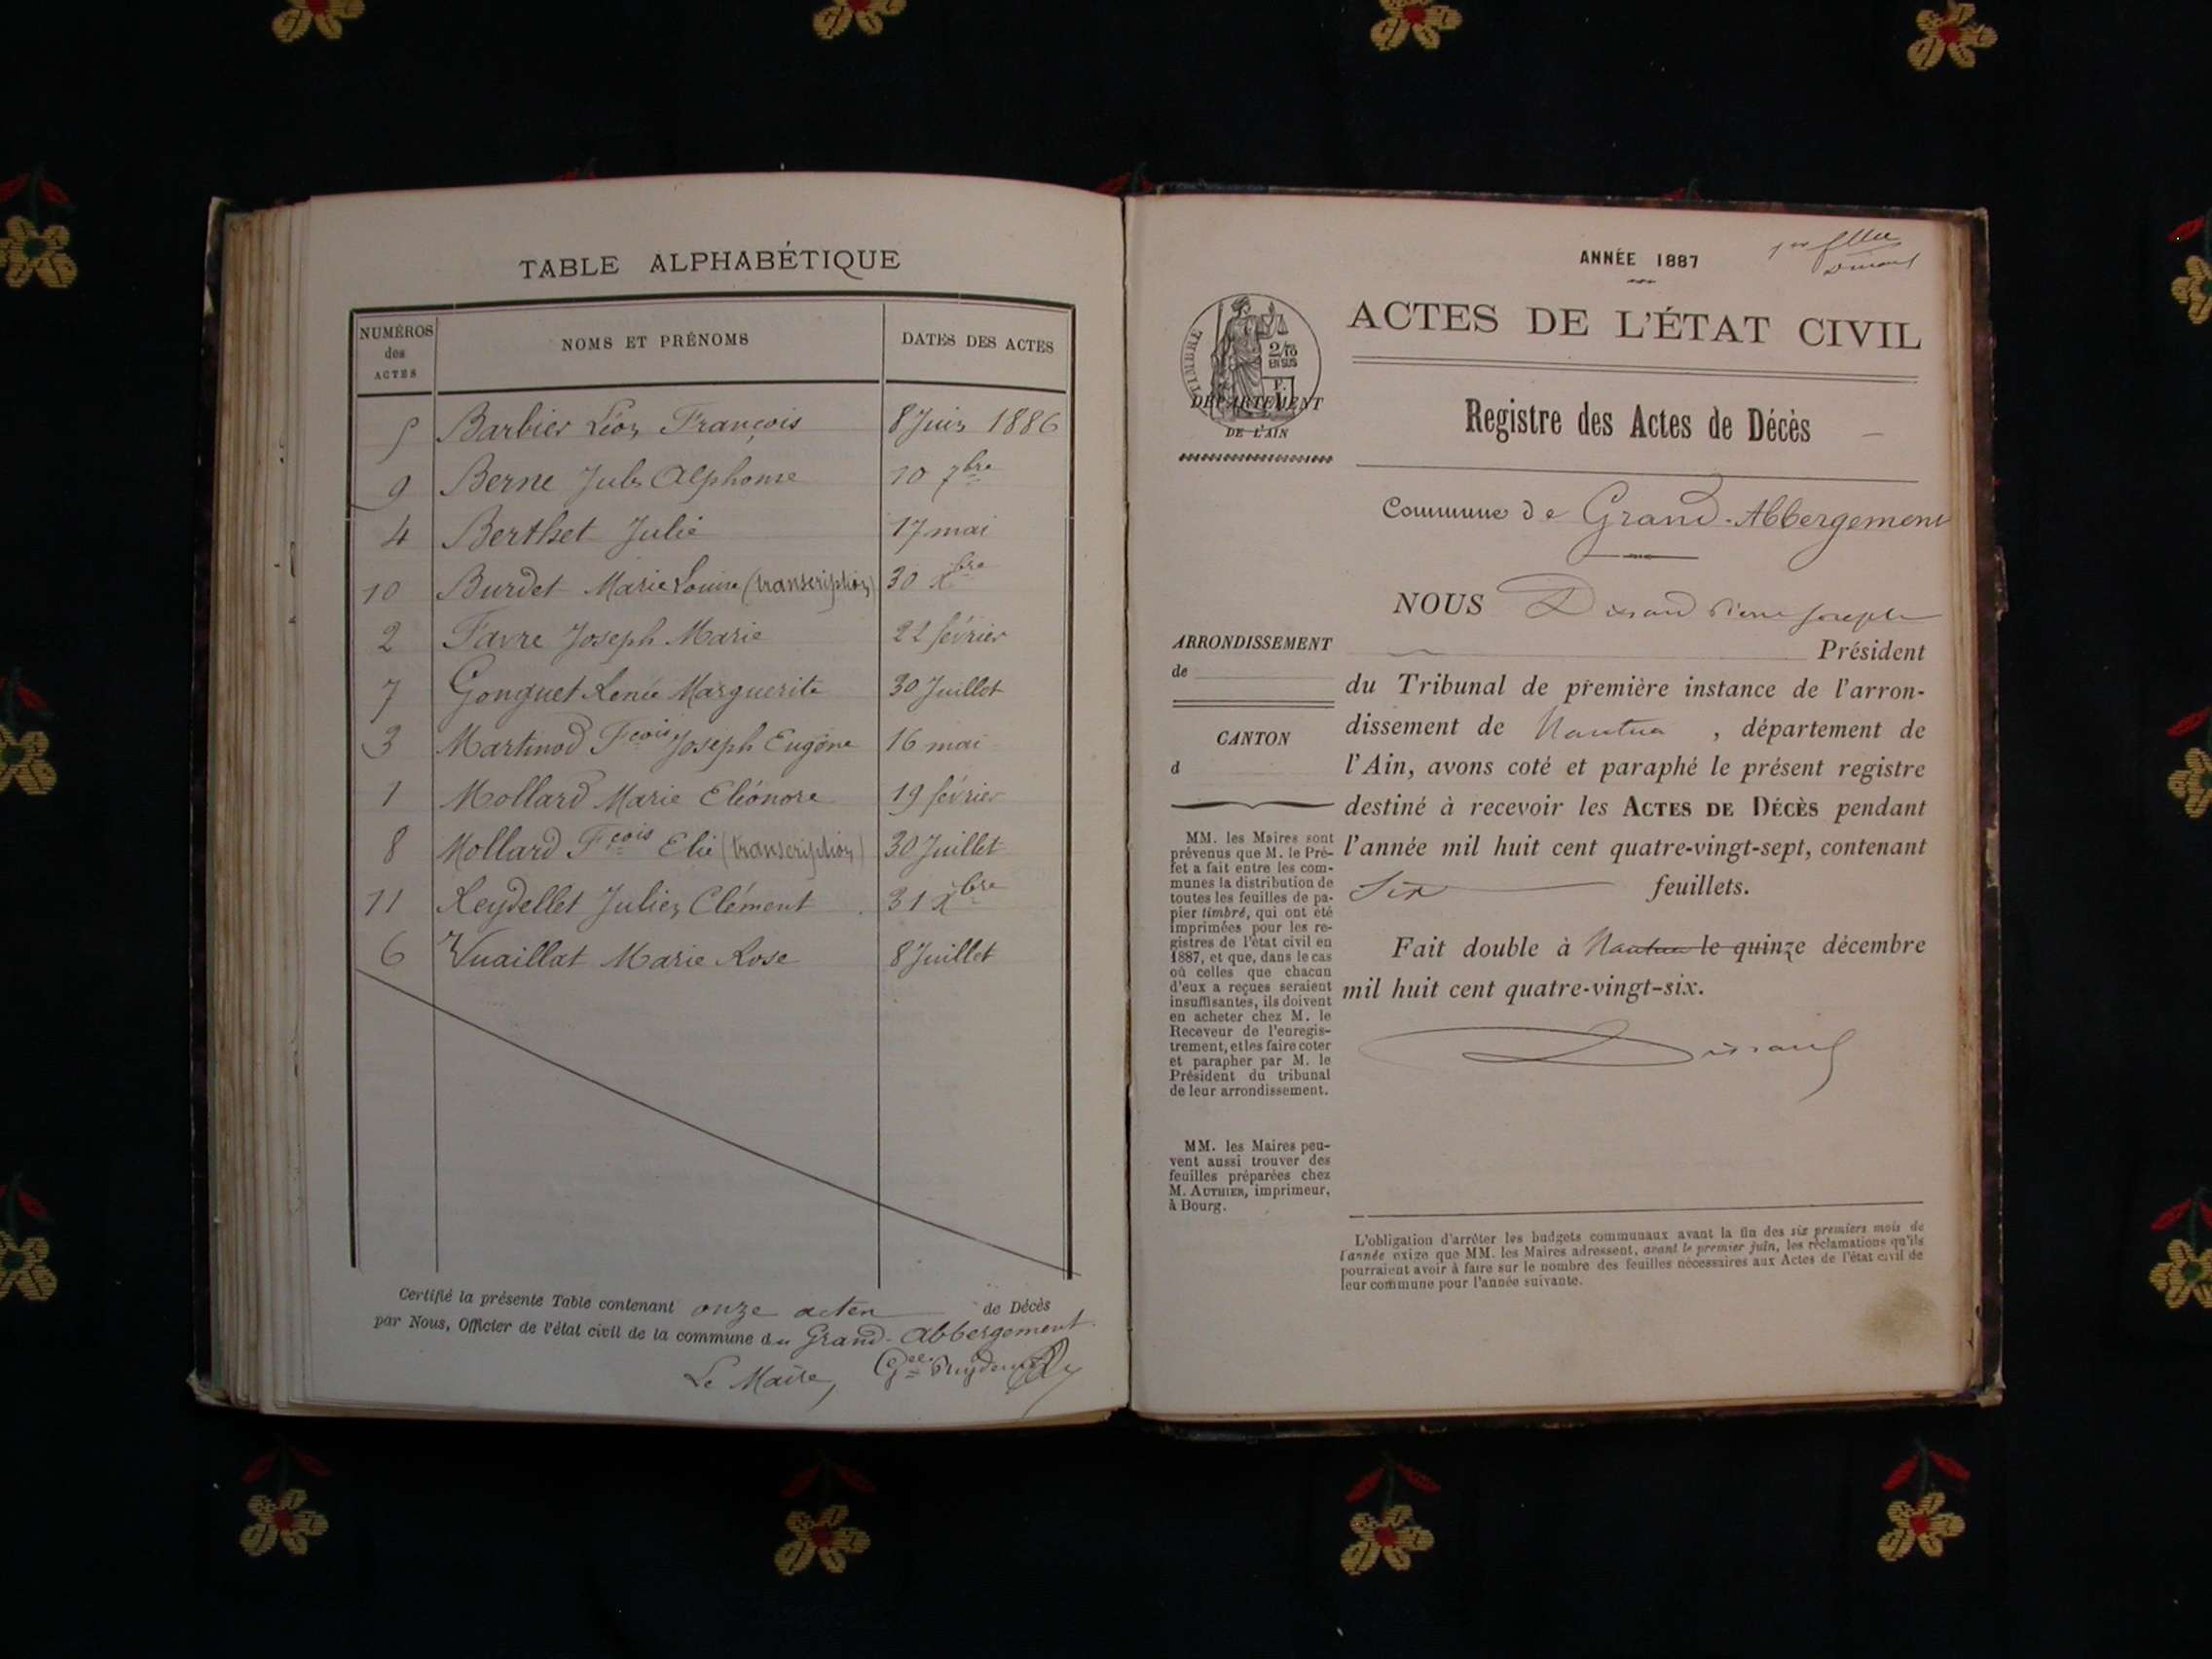 TABLE ALPHABÉTIQUE
NUMÉROS des ACTES NOMS ET PRÉNOMS DATES DES ACTES
5 Barbier Léon François 8 Juin 1886
9 Berne Jules Alphonse 10 7bre
4 Berthet Julie 17 mai
10 Burdet Marie Louise (transcription) 30 Xbre
2 Favre Joseph Marie 22 février
7 Gonguet Renée Marguerite 30 Juillet
3 Martinod Fçois Joseph Eugène 16 mai
1 Mollard Marie Eléonore 19 février
8 Mollard Fçois Elie (transcription) 30 Juillet
11 Reydellet Julien Clément 31 Xbre
6 Vuaillat Marie Rose 8 Juillet
Certifié la présente Table contenant onze actes de Décès
par Nous, Officier de l'état civil de la commune du Grand-Abbergement.
Le Maire,
ANNÉE 1887
ACTES DE L'ÉTAT CIVIL
TIMBRE
2/10
EN SUS
DÉPARTEMENT
DE L'AIN
Registre des Actes de Décès
Commune de Grand-Abbergement
NOUS Pierre Joseph
Président
du Tribunal de première instance de l'arron-
dissement de Nantua , département de
l'Ain, avons coté et paraphé le présent registre
destiné à recevoir les ACTES DE DÉCÈS pendant
l'année mil huit cent quatre-vingt-sept, contenant
Six feuillets.
Fait double à Nantua le quinze décembre
mil huit cent quatre-vingt-six.
ARRONDISSEMENT
de
CANTON
d
MM. les Maires sont
prévenus que M. le Pré-
fet a fait entre les com-
munes la distribution de
toutes les feuilles de pa-
pier timbré, qui ont été
imprimées pour les re-
gistres de l'état civil en
1887, et que, dans le cas
où celles que chacun
d'eux a reçues seraient
insuffisantes, ils doivent
en acheter chez M. le
Receveur de l'enregis-
trement, et les faire coter
et parapher par M. le
Président du tribunal
de leur arrondissement.
MM. les Maires peu-
vent aussi trouver des
feuilles préparées chez
M. AUTHIER, imprimeur,
à Bourg.
L'obligation d'arrêter les budgets communaux avant la fin des six premiers mois de
l'année exige que MM. les Maires adressent, avant le premier juin, les réclamations qu'ils
pourraient avoir à faire sur le nombre des feuilles nécessaires aux Actes de l'état civil de
leur commune pour l'année suivante.